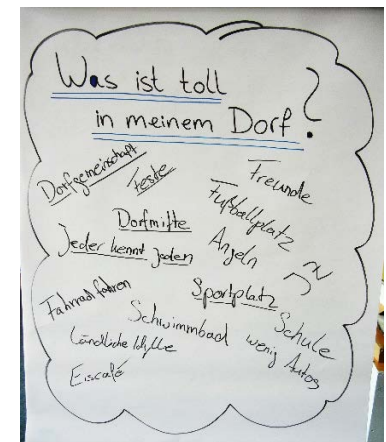 Was ist toll
in meinem Dorf?
Dorfgemeinschaft
Feste
Freunde
Fußballplatz
Dorfmitte
Jeder kennt jeden
Angeln
Fahrrad fahren
Sportplatz
Schwimmbad
Schule
Ländliche Idylle
wenig Autos
Eiscafé